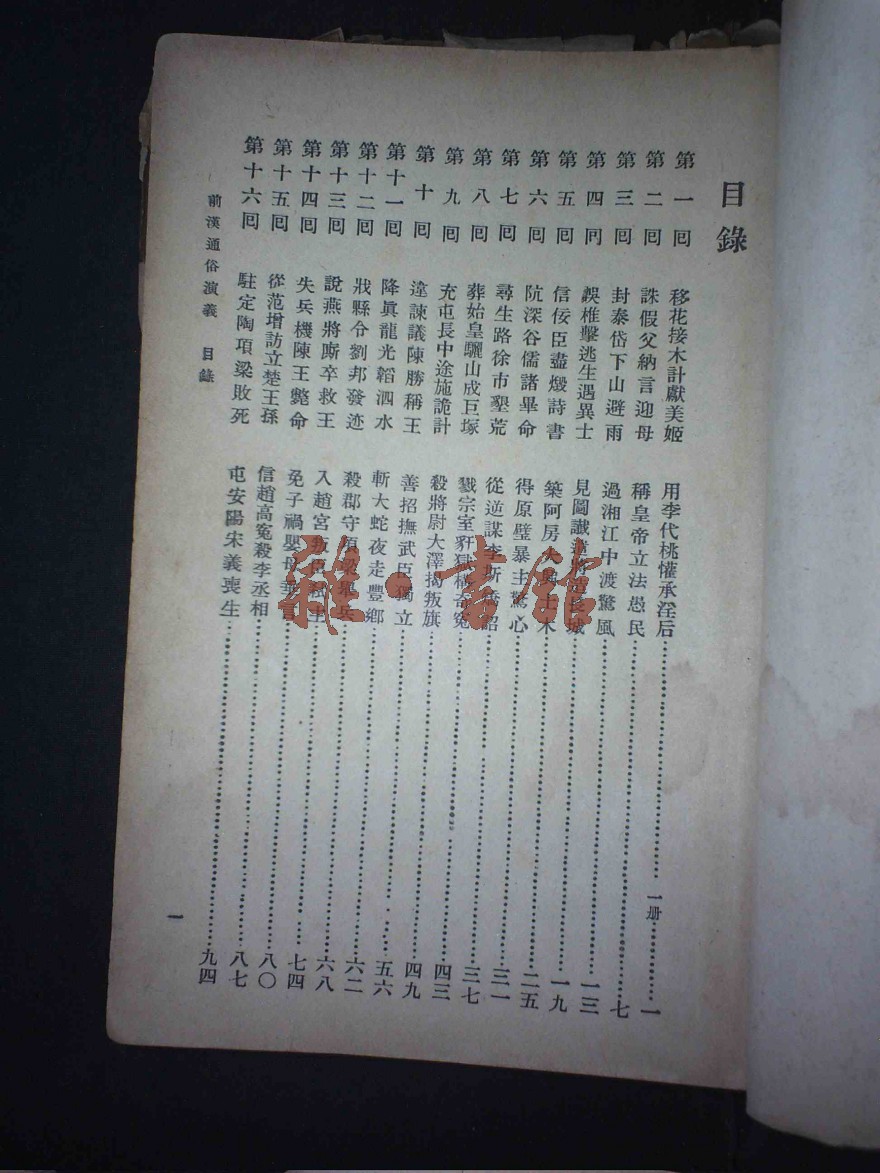 目錄
第一囘 移花接木計獻美姬 用李代桃懽承淫后 一册 一
第二囘 誅假父納言迎母 稱皇帝立法愚民 七
第三囘 封泰岱下山避雨 過湘江中渡驚風 一三
第四囘 誤椎擊逃生遇異士 見圖讖 造長城 一九
第五囘 信佞臣盡燬詩書 築阿房大興土木 二五
第六囘 阬深谷儒諸畢命 得原璧暴主驚心 三一
第七囘 尋生路徐市墾荒 從逆謀李斯矯詔 三七
第八囘 葬始皇驪山成巨塚 戮宗室豻獄構奇冤 四三
第九囘 充屯長中途施詭計 殺將尉大澤揭叛旗 四九
第十囘 違諫議陳勝稱王 善招撫武臣獨立 五六
第十一囘 降眞龍光韜泗水 斬大蛇夜走豐鄉 六二
第十二囘 戕縣令劉邦發迹 殺郡守項梁舉兵 六八
第十三囘 說燕將廝卒救王 入趙宮叛臣弑主 七四
第十四囘 失兵機陳王斃命 免子禍嬰母垂言 八〇
第十五囘 從范增訪立楚王孫 信趙高冤殺李丞相 八七
第十六囘 駐定陶項梁敗死 屯安陽宋義喪生 九四
前漢通俗演義 目錄
一
雜·書館